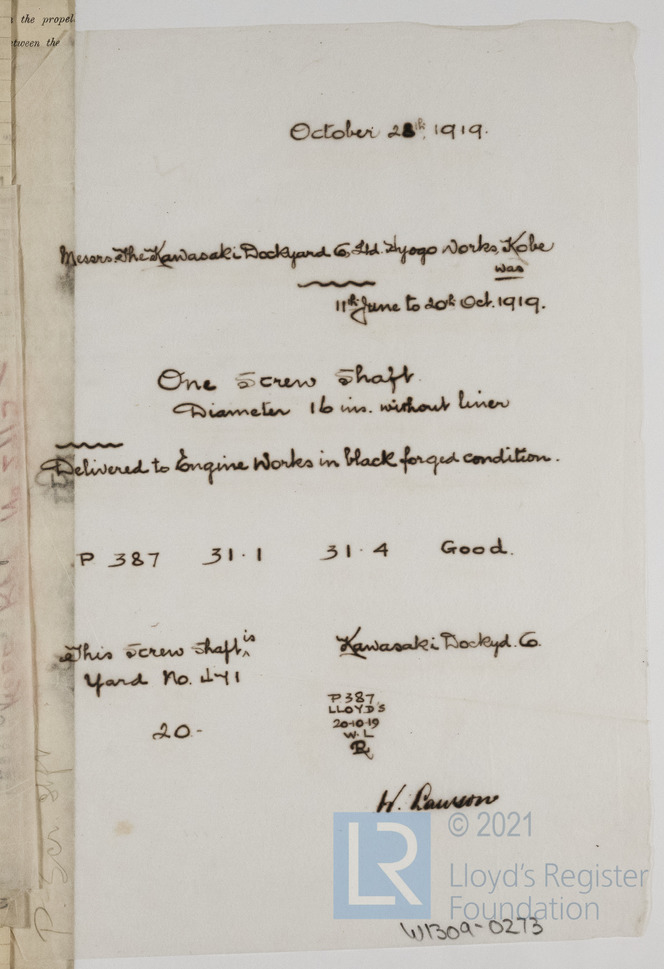 the propel
between the
October 28th, 1919.
Messrs. The Kawasaki Dockyard Co. Ltd. Hyogo Works, Kobe
was
11th June to 20th Oct. 1919.
One Screw Shaft.
Diameter 16 ins. without liner
Delivered to Engine Works in black forged condition.
P 387 31.1 31.4 Good.
This Screw Shaft is
Kawasaki Dockyd. Co.
Yard No. 441
P 387
LLOYD'S
20-10-19
W.L
20-
W. Lawson
LR
© 2021
Lloyd's Register
Foundation
W1309-0273